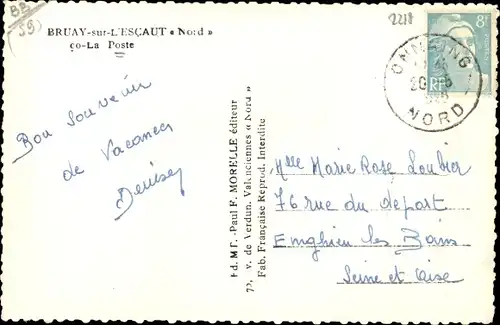 BP
(59)
2218
BRUAY-sur-L'ESCAUT « Nord »
ço-La Poste
8F
RF
ONNAING
20-8
NORD
Bon souvenir
de Vacances
Denise
Ed. MF.-Paul F. MORELLE éditeur
72, v. de Verdun. Valenciennes « Nord »
Fab. Française Reprod. Interdite
Mlle Marie Rose Loubier
76 rue du depart
Enghien les Bains
Seine et Oise